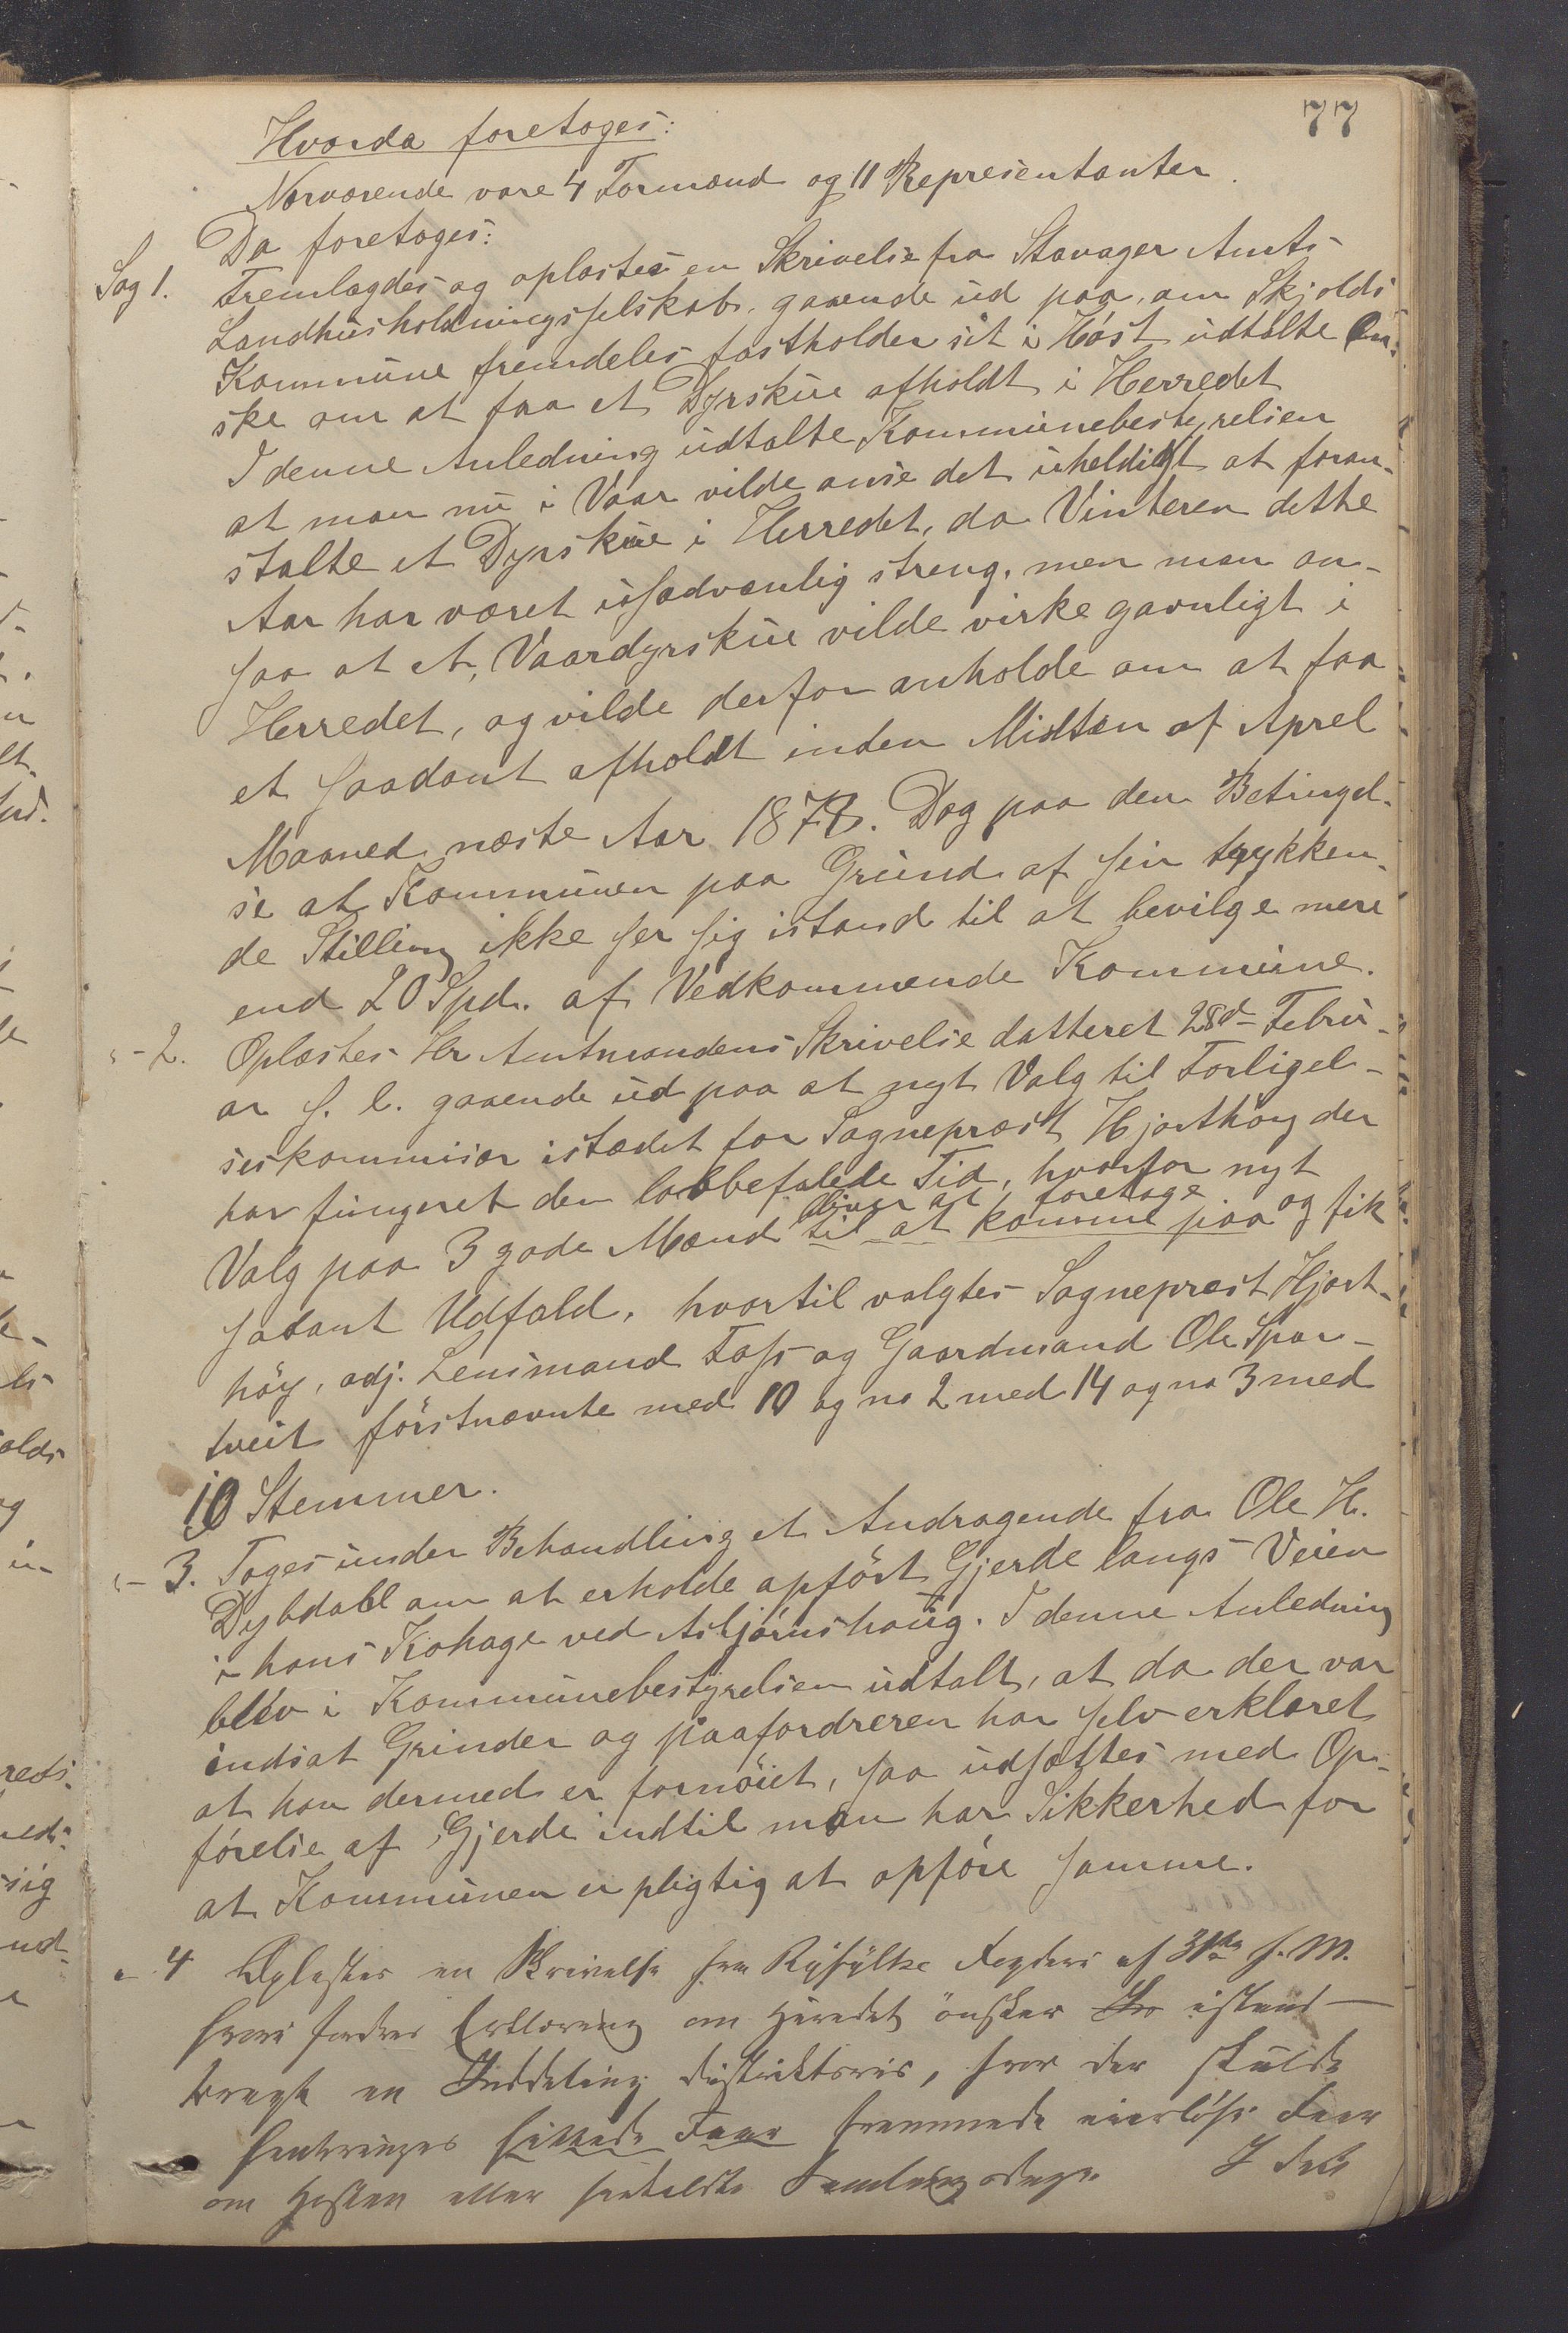 77
Hvorda foretoges:
Nærværende vare 4 Formænd og 11 Repræsentanter.
Da foretoges:
Sag 1. Fremlagdes og oplæstes en Skrivelse fra Stavager Amts
Landhusholdningsselskab, gaaende ud paa, om Skjolds
Kommune fremdeles fastholder sit i Høst udtalte Øn-
ske om at faa et Dyrskue afholdt i Herredet
I denne Anledning udtalte Kommunebestyrelsen
at man nu i Vaar vilde anse det uheldigt at foran-
stalte et Dyrskue i Herredet, da Vinteren dette
Aar har været usædvanlig streng, men man an-
saa at et Vaardyrskue vilde virke gavnligt i
Herredet, og vilde derfor anholde om at faa
et saadant afholdt inden Midten af Aprel
Maaned næste Aar 1878. Dog paa den Betingel-
se at Kommunen paa Grund af sin trykken-
de Stilling ikke ser sig istand til at bevilge mere
end 20 Spd. af Vedkommende Kommune.
- 2. Oplæstes Hr Amtmandens Skrivelse datteret 28d Febru-
ar s. l. gaaende ud paa at nyt Valg til Forligel-
seskommisær istædet for Sognepræst Hjorthøy der
har fungeret den lovbefalede Tid, hvorfor nyt
bliver at foretage.
Valg paa 3 gode Mænd til at komme paa og fik
sadant Udfald, hvortil valgtes Sogneprest Hjort-
høy, adj. Lensmand Foss og Gaardmand Ole Spor-
tveit förstnævnte med 10 og no 2 med 14 og no 3 med
10 Stemmer.
- 3. Toges under Behandling et Andragende fra Ole H.
Dybdahl om at erholde opfört Gjerde langs Veien
i hans Kohage ved Asbjørnshaug. I denne Anledning
blev i Kommunebestyrelsen udtalt, at da der var
indsat Grinder og paafordreren har selv erklæret
at han dermed er fornöiet, saa udsættes med Op-
förelse af Gjerde indtil man har Sikkerhed for
at Kommunen er pligtig at opföre samme.
- 4 Oplæstes en Skrivelse fra Ryfylke Fogderi af 31te f. M.
hvori fordres Erklæring om Heredet önsker istand-
bragt en Inddeling distriktsvis, hvor der skulde
frembringes fremmede eierlöse Faar
om Hösten eller saakaldte Samlingsdage. I det